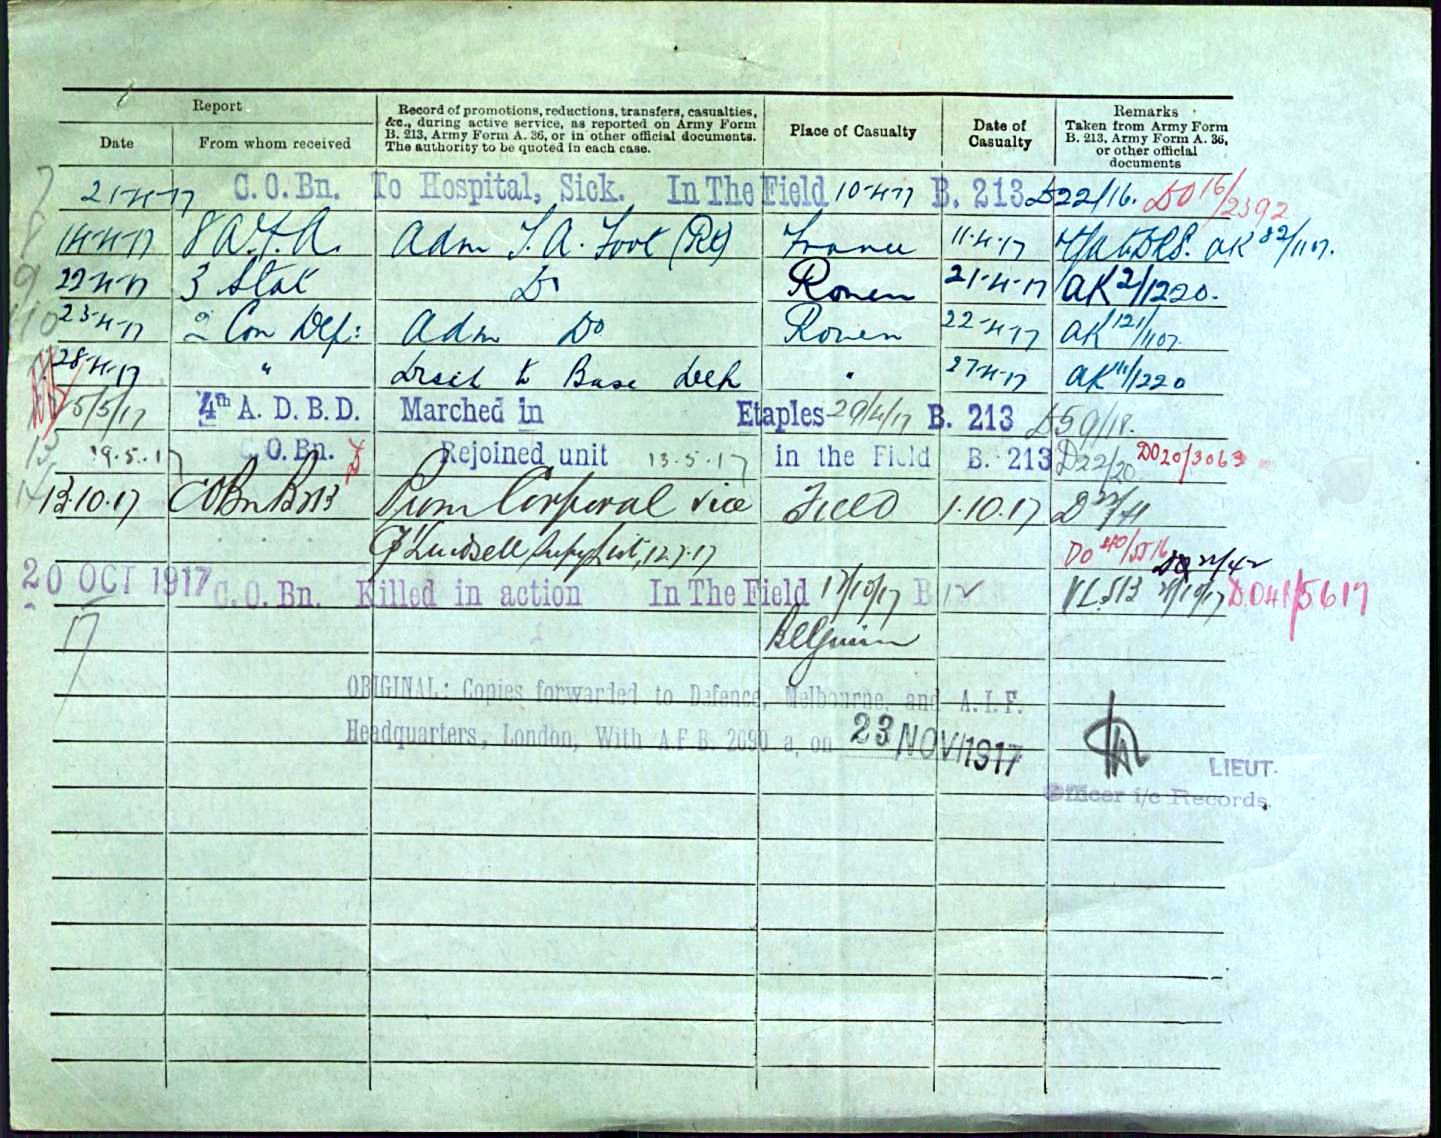 Report
Date
From whom received
Record of promotions, reductions, transfers, casualties, &c., during active service, as reported on Army Form B. 213, Army Form A. 36, or in other official documents. The authority to be quoted in each case.
Place of Casualty
Date of Casualty
Remarks
Taken from Army Form B. 213, Army Form A. 36, or other official documents
7 21-4-17 C.O.Bn. To Hospital, Sick. In The Field 10-4-17 B. 213 D22/16. DO 16/2392
8 14-4-17 8 A.F.A. Adm T.A. Foot (Rt) France 11-4-17 AK 82/1107.
9 22-4-17 3 Stat Do Rouen 21-4-17 AK 2/1220.
10 23-4-17 2 Con Dep: Adm Do Rouen 22-4-17 AK 121/1107.
28-4-17 " Disch to Base Dep " 27-4-17 AK 11/1220
5/5/17 4th A. D. B. D. Marched in Etaples 29/4/17 B. 213 D59/18.
13 19.5.17 C.O.Bn. Rejoined unit 13.5.17 in the Field B. 213 D22/20 DO20/3063
14 13.10.17 CO Bn B213 Prom Corporal vice Field 1.10.17 D22/41
12.7.17 DO 40/5516 22/42
20 OCT 1917 C.O.Bn. Killed in action In The Field 12/10/17 B. 213 D041/5617
17 Belgium
ORIGINAL: Copies forwarded to Defence, Melbourne, and A.I.F.
Headquarters, London, With A.F.B. 2090 a, on 23 NOV 1917
LIEUT.
Officer i/c Records.